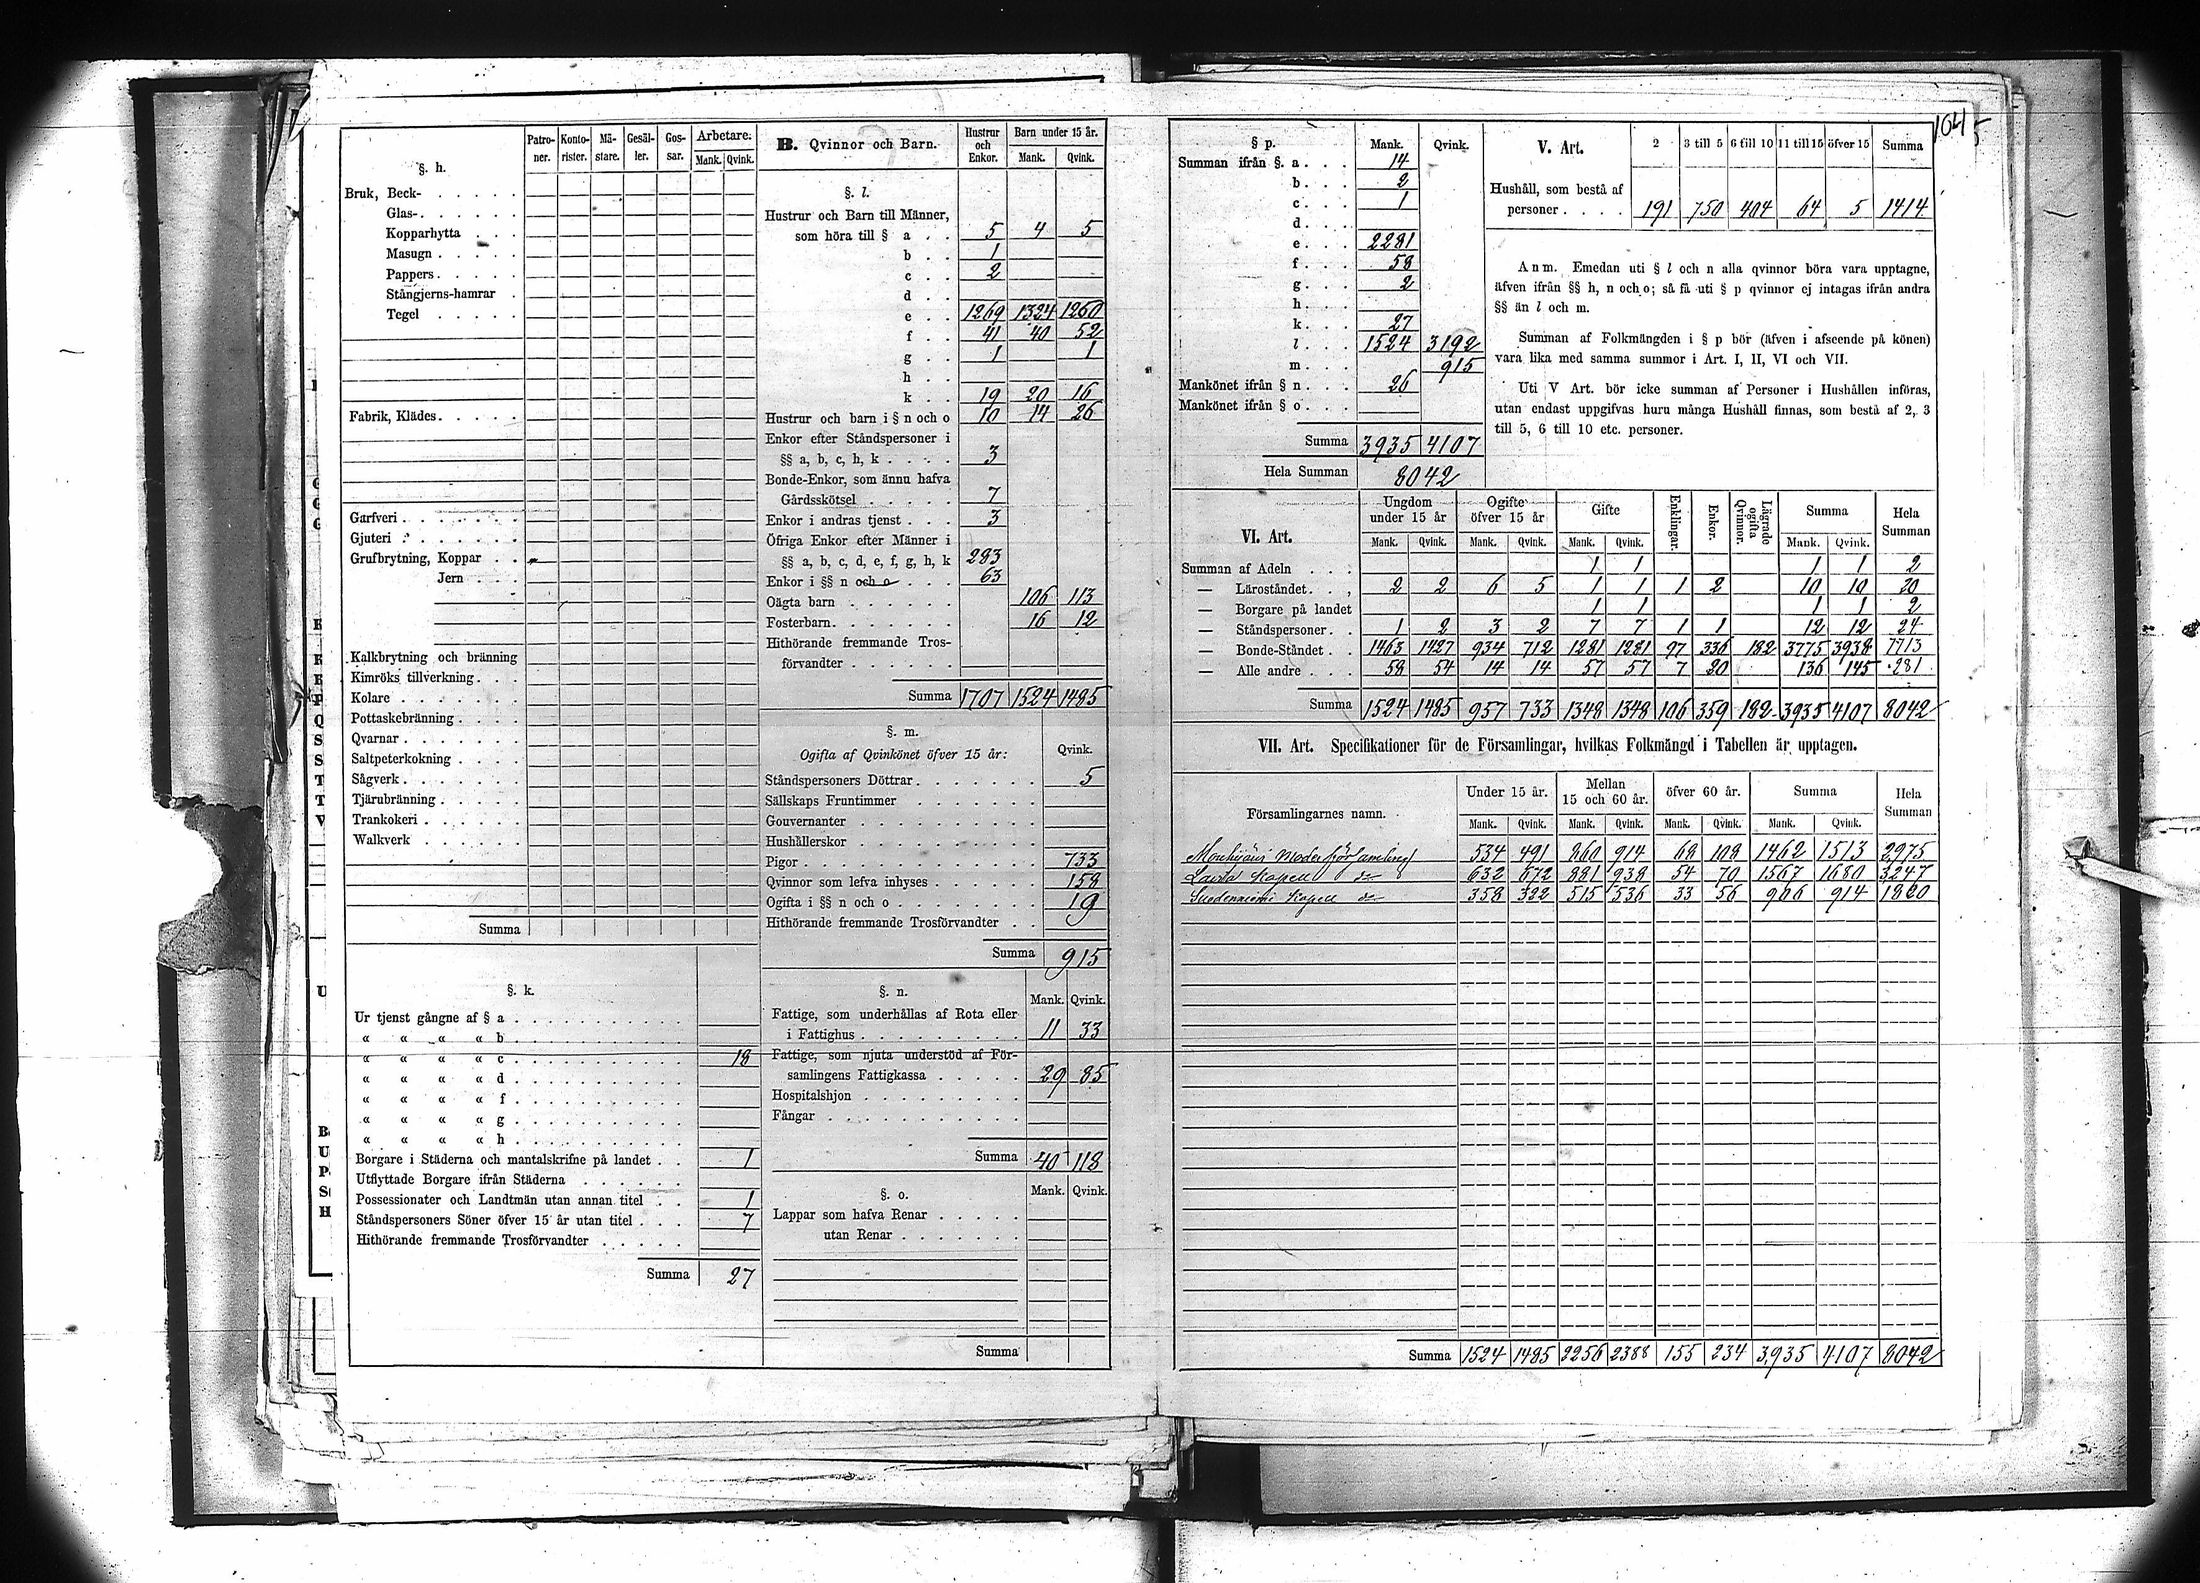 §. h.
Patroner. Kontorister. Mästare. Gesäller. Gossar. Arbetare: Mank. Qvink.
Bruk, Beck-
Glas-
Kopparhytta
Masugn
Pappers
Stångjerns-hamrar
Tegel
Fabrik, Klädes
Garfveri
Gjuteri
Grufbrytning, Koppar
Jern
Kalkbrytning och bränning
Kimröks tillverkning
Kolare
Pottaskebränning
Qvarnar
Saltpeterkokning
Sågverk
Tjärubränning
Trankokeri
Walkverk
Summa
§. k.
Ur tjenst gångne af § a
« « « « b
« « « « c 18
« « « « d
« « « « f
« « « « g
« « « « h
Borgare i Städerna och mantalskrifne på landet 1
Utflyttade Borgare ifrån Städerna
Possessionater och Landtmän utan annan titel 1
Ståndspersoners Söner öfver 15 år utan titel 7
Hithörande fremmande Trosförvandter
Summa 27
B. Qvinnor och Barn. Hustrur och Enkor. Barn under 15 år. Mank. Qvink.
§. l.
Hustrur och Barn till Männer,
som höra till § a 5 4 5
b 1
c 2
d
e 1269 1324 1260
f 41 40 52
g 1 1
h
k 19 20 16
Hustrur och barn i § n och o 10 14 26
Enkor efter Ståndspersoner i
§§ a, b, c, h, k 3
Bonde-Enkor, som ännu hafva
Gårdsskötsel 7
Enkor i andras tjenst 3
Öfriga Enkor efter Männer i
§§ a, b, c, d, e, f, g, h, k 283
Enkor i §§ n och o 63
Oägta barn 106 113
Fosterbarn 16 12
Hithörande fremmande Trosförvandter
Summa 1707 1524 1485
§. m.
Ogifta af Qvinkönet öfver 15 år: Qvink.
Ståndspersoners Döttrar 5
Sällskaps Fruntimmer
Gouvernanter
Hushållerskor
Pigor 733
Qvinnor som lefva inhyses 158
Ogifta i §§ n och o 19
Hithörande fremmande Trosförvandter
Summa 915
§. n. Mank. Qvink.
Fattige, som underhållas af Rota eller
i Fattighus 11 33
Fattige, som njuta understöd af Församlingens Fattigkassa 29 85
Hospitalshjon
Fångar
Summa 40 118
§. o. Mank. Qvink.
Lappar som hafva Renar
utan Renar
Summa
104 5
§ p. Mank. Qvink.
Summan ifrån §. a 14
b 2
c 1
d
e 2281
f 58
g 2
h
k 27
l 1524 3192
m 915
Mankönet ifrån § n 26
Mankönet ifrån § o
Summa 3935 4107
Hela Summan 8042
V. Art. 2 3 till 5 6 till 10 11 till 15 öfver 15 Summa
Hushåll, som bestå af
personer 191 750 404 64 5 1414
Anm. Emedan uti § l och n alla qvinnor böra vara upptagne,
äfven ifrån §§ h, n och o; så få uti § p qvinnor ej intagas ifrån andra
§§ än l och m.
Summan af Folkmängden i § p bör (äfven i afseende på könen)
vara lika med samma summor i Art. I, II, VI och VII.
Uti V Art. bör icke summan af Personer i Hushållen införas,
utan endast uppgifvas huru många Hushåll finnas, som bestå af 2, 3
till 5, 6 till 10 etc. personer.
VI. Art. Ungdom under 15 år Ogifte öfver 15 år Gifte Enklingar. Enkor. Lägrade ogifta Qvinnor. Summa Hela Summan
Mank. Qvink. Mank. Qvink. Mank. Qvink. Mank. Qvink.
Summan af Adeln 1 1 1 1 2
— Läroståndet 2 2 6 5 1 1 1 2 10 10 20
— Borgare på landet 1 1 1 1 2
— Ståndspersoner 1 2 3 2 7 7 1 1 12 12 24
— Bonde-Ståndet 1463 1427 934 712 1281 1281 97 336 182 3775 3938 7713
— Alle andre 58 54 14 14 57 57 7 20 136 145 281
Summa 1524 1485 957 733 1348 1348 106 359 182 3935 4107 8042
VII. Art. Specifikationer för de Församlingar, hvilkas Folkmängd i Tabellen är upptagen.
Församlingarnes namn. Under 15 år. Mellan 15 och 60 år. öfver 60 år. Summa Hela Summan
Mank. Qvink. Mank. Qvink. Mank. Qvink. Mank. Qvink.
Mouhijärvi Moderförsamling 534 491 860 914 68 108 1462 1513 2975
Lavia Kapell do 632 672 881 938 54 70 1567 1680 3247
Suodenniemi Kapell do 358 322 515 536 33 56 906 914 1820
Summa 1524 1485 2256 2388 155 234 3935 4107 8042